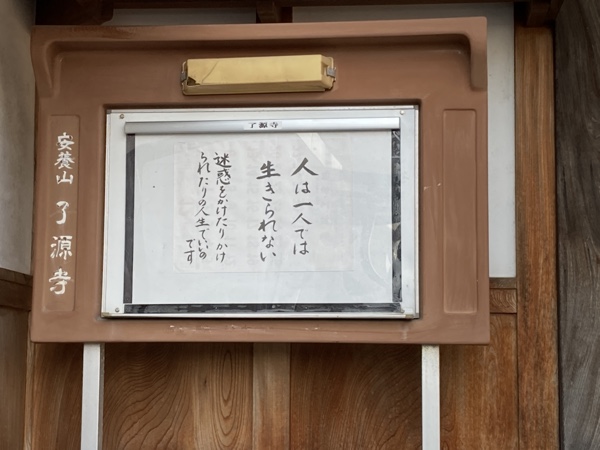 了源寺
人は一人では
生きられない
迷惑をかけたりかけ
られたりの人生でいいの
です
安養山 了源寺